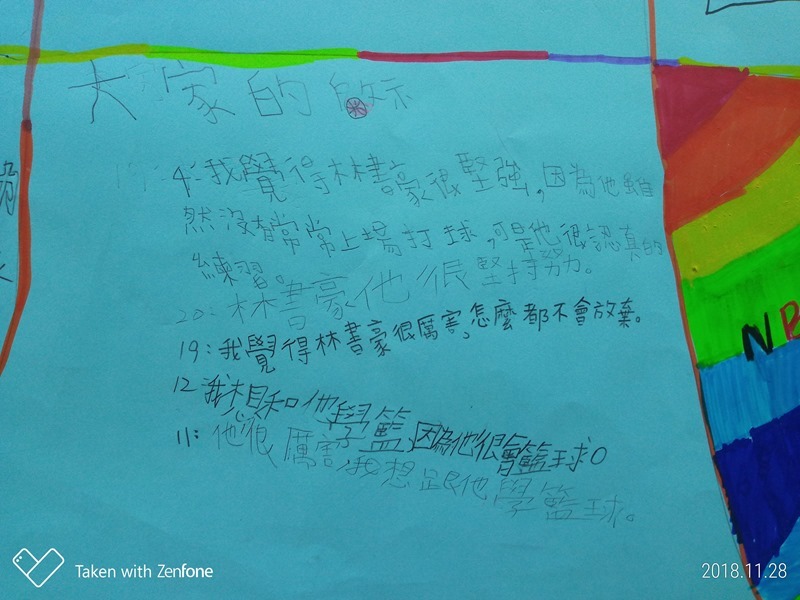 大家的啟示
4:我覺得林書豪很堅強,因為他雖
然沒有常常上場打球,可是他很認真的
練習。
20:林書豪他很堅持努力。
19:我覺得林書豪很厲害,怎麼都不會放棄。
12我想和他學籃,因為他很會籃球。
11:他很厲害,我想跟他學籃球。
N
Taken with Zenfone
2018.11.28